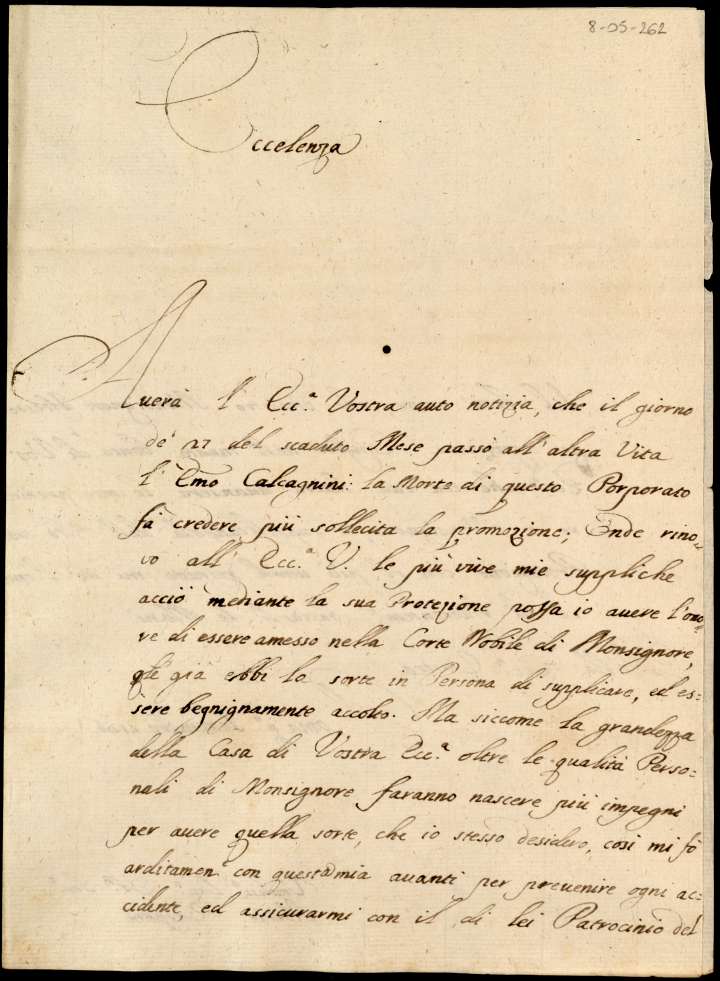 8-05-262
Eccelenza
Auerà l'Ecc.ª Vostra auto notizia, che il giorno
de' 27 del scaduto Mese passò all'altra Vita
l'Emo Calcagnini: la Morte di questo Porporato
fà credere più sollecita la promozione; Onde rino-
vo all'Ecc.ª V. le più vive mie suppliche
acciò mediante la sua Protezione possa io auere l'ono-
re di essere amesso nella Corte Nobile di Monsignore,
già ebbi la sorte in Persona di supplicare, ed es:
sere begnignamente accolto. Ma siccome la grandezza
della Casa di Vostra Ecc.ª oltre le qualità Perso-
nali di Monsignore faranno nascere più impegni
per auere quella sorte, che io stesso desidero, così mi fò
arditamen.e con questa mia auanti per preuenire ogni ac-
cidente, ed assicurarmi con il di lei Patrocinio del